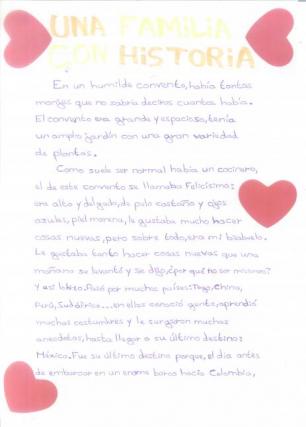 UNA FAMILIA
CON HISTORIA
En un humilde convento, había tantas
monjas que no sabría deciros cuantas había.
El convento era grande y espacioso, tenía
un amplio jardín con una gran variedad
de plantas.
Como suele ser normal había un cocinero,
el de este convento se llamaba Felicísimo:
era alto y delgado, de pelo castaño y ojos
azules, piel morena, le gustaba mucho hacer
cosas nuevas, pero sobre todo, era mi bisabuelo.
Le gustaba tanto hacer cosas nuevas que una
mañana se levantó y se dijo, ¿por qué no ser misionero?
Y así lo hizo. Pasó por muchos países: Togo, China,
Perú, Sudáfrica... en ellos conoció gente, aprendió
muchas costumbres y le surgieron muchas
anécdotas, hasta llegar a su último destino:
México. Fue su último destino porque, el día antes
de embarcar en un enorme barco hacia Colombia,